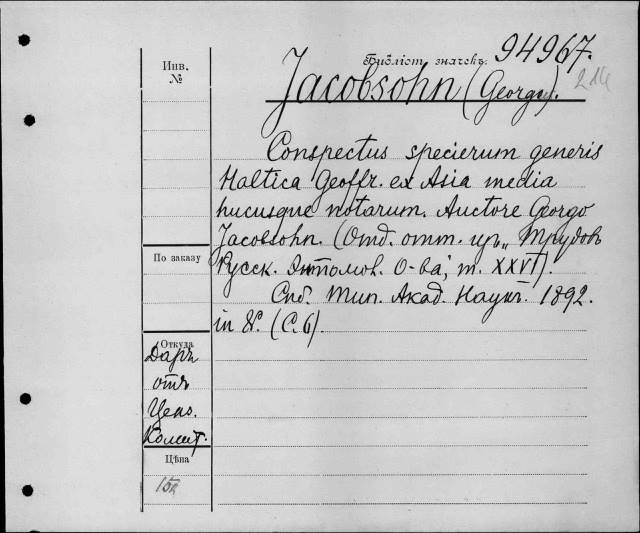 Инв.
№
Библіот. значекъ. 94967.
214
Jacobsohn (Georgo).
Conspectus specierum generis
Haltica Geoffr. ex Asia media
hucusque notarum. Auctore Georgo
Jacobsohn. (Отд. отт. изъ „Трудовъ
По заказу
Русск. Энтомол. О-ва", т. XXVI).
Спб. Тип. Акад. Наукъ. 1892.
in 8°. (С. 6).
Откуда
Даръ
отъ
Ценз.
Комит.
Цѣна
15к